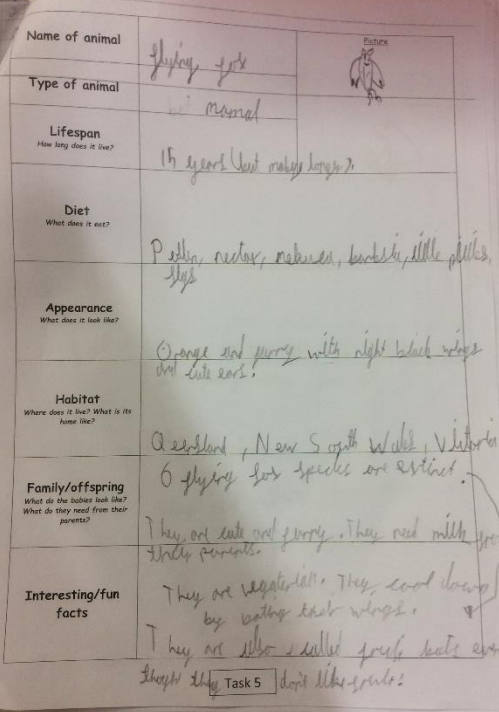 Name of animal
flying fox
Picture
Type of animal
mamal
Lifespan
How long does it live?
15 years (but maby longer).
Diet
What does it eat?
nectar, banksia,
Appearance
What does it look like?
Orange and furry with night black wings
and cute ears.
Habitat
Where does it live? What is its home like?
Qeensland, New South Wales, Vitoria
6 flying fox species are extinct.
Family/offspring
What do the babies look like?
What do they need from their parents?
They are cute and furry. They need milk
their parents.
Interesting/fun facts
They are vegaterian. They cool down
by wings.
They are also called fruit bats even
though they don't like fruit!
Task 5